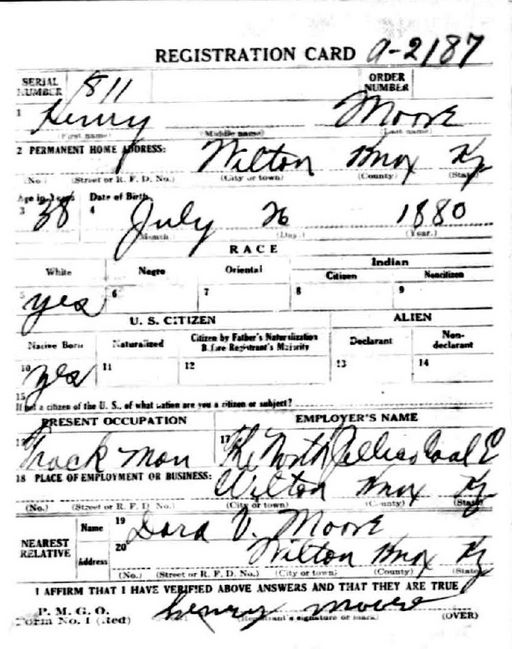 REGISTRATION CARD a-2187
SERIAL NUMBER 1811 ORDER NUMBER
1 Henry Moore
(First name) (Middle name) (Last name)
2 PERMANENT HOME ADDRESS: Wilton Knox Ky
(No.) (Street or R. F. D. No.) (City or town) (County) (State)
Age in Years Date of Birth
3 38 4 July 26 1880
(Month) (Day) (Year.)
RACE
White Negro Oriental Indian
Citizen Noncitizen
5 yes 6 7 8 9
U. S. CITIZEN ALIEN
Native Born Naturalized Citizen by Father's Naturalization Before Registrant's Majority Declarant Non-declarant
10 yes 11 12 13 14
15
If not a citizen of the U. S., of what nation are you a citizen or subject?
PRESENT OCCUPATION EMPLOYER'S NAME
Track Man 17 The North Jellico Coal C
18 PLACE OF EMPLOYMENT OR BUSINESS: Wilton Knox Ky
(No.) (Street or R. F. D. No.) (City or town) (County) (State)
NEAREST RELATIVE Name 19 Dora V. Moore
Address 20 Wilton Knox Ky
(No.) (Street or R. F. D. No.) (City or town) (County) (State)
I AFFIRM THAT I HAVE VERIFIED ABOVE ANSWERS AND THAT THEY ARE TRUE
P. M. G. O.
Form No. 1 (Red) Henry Moore (OVER)
(Registrant's signature or mark)